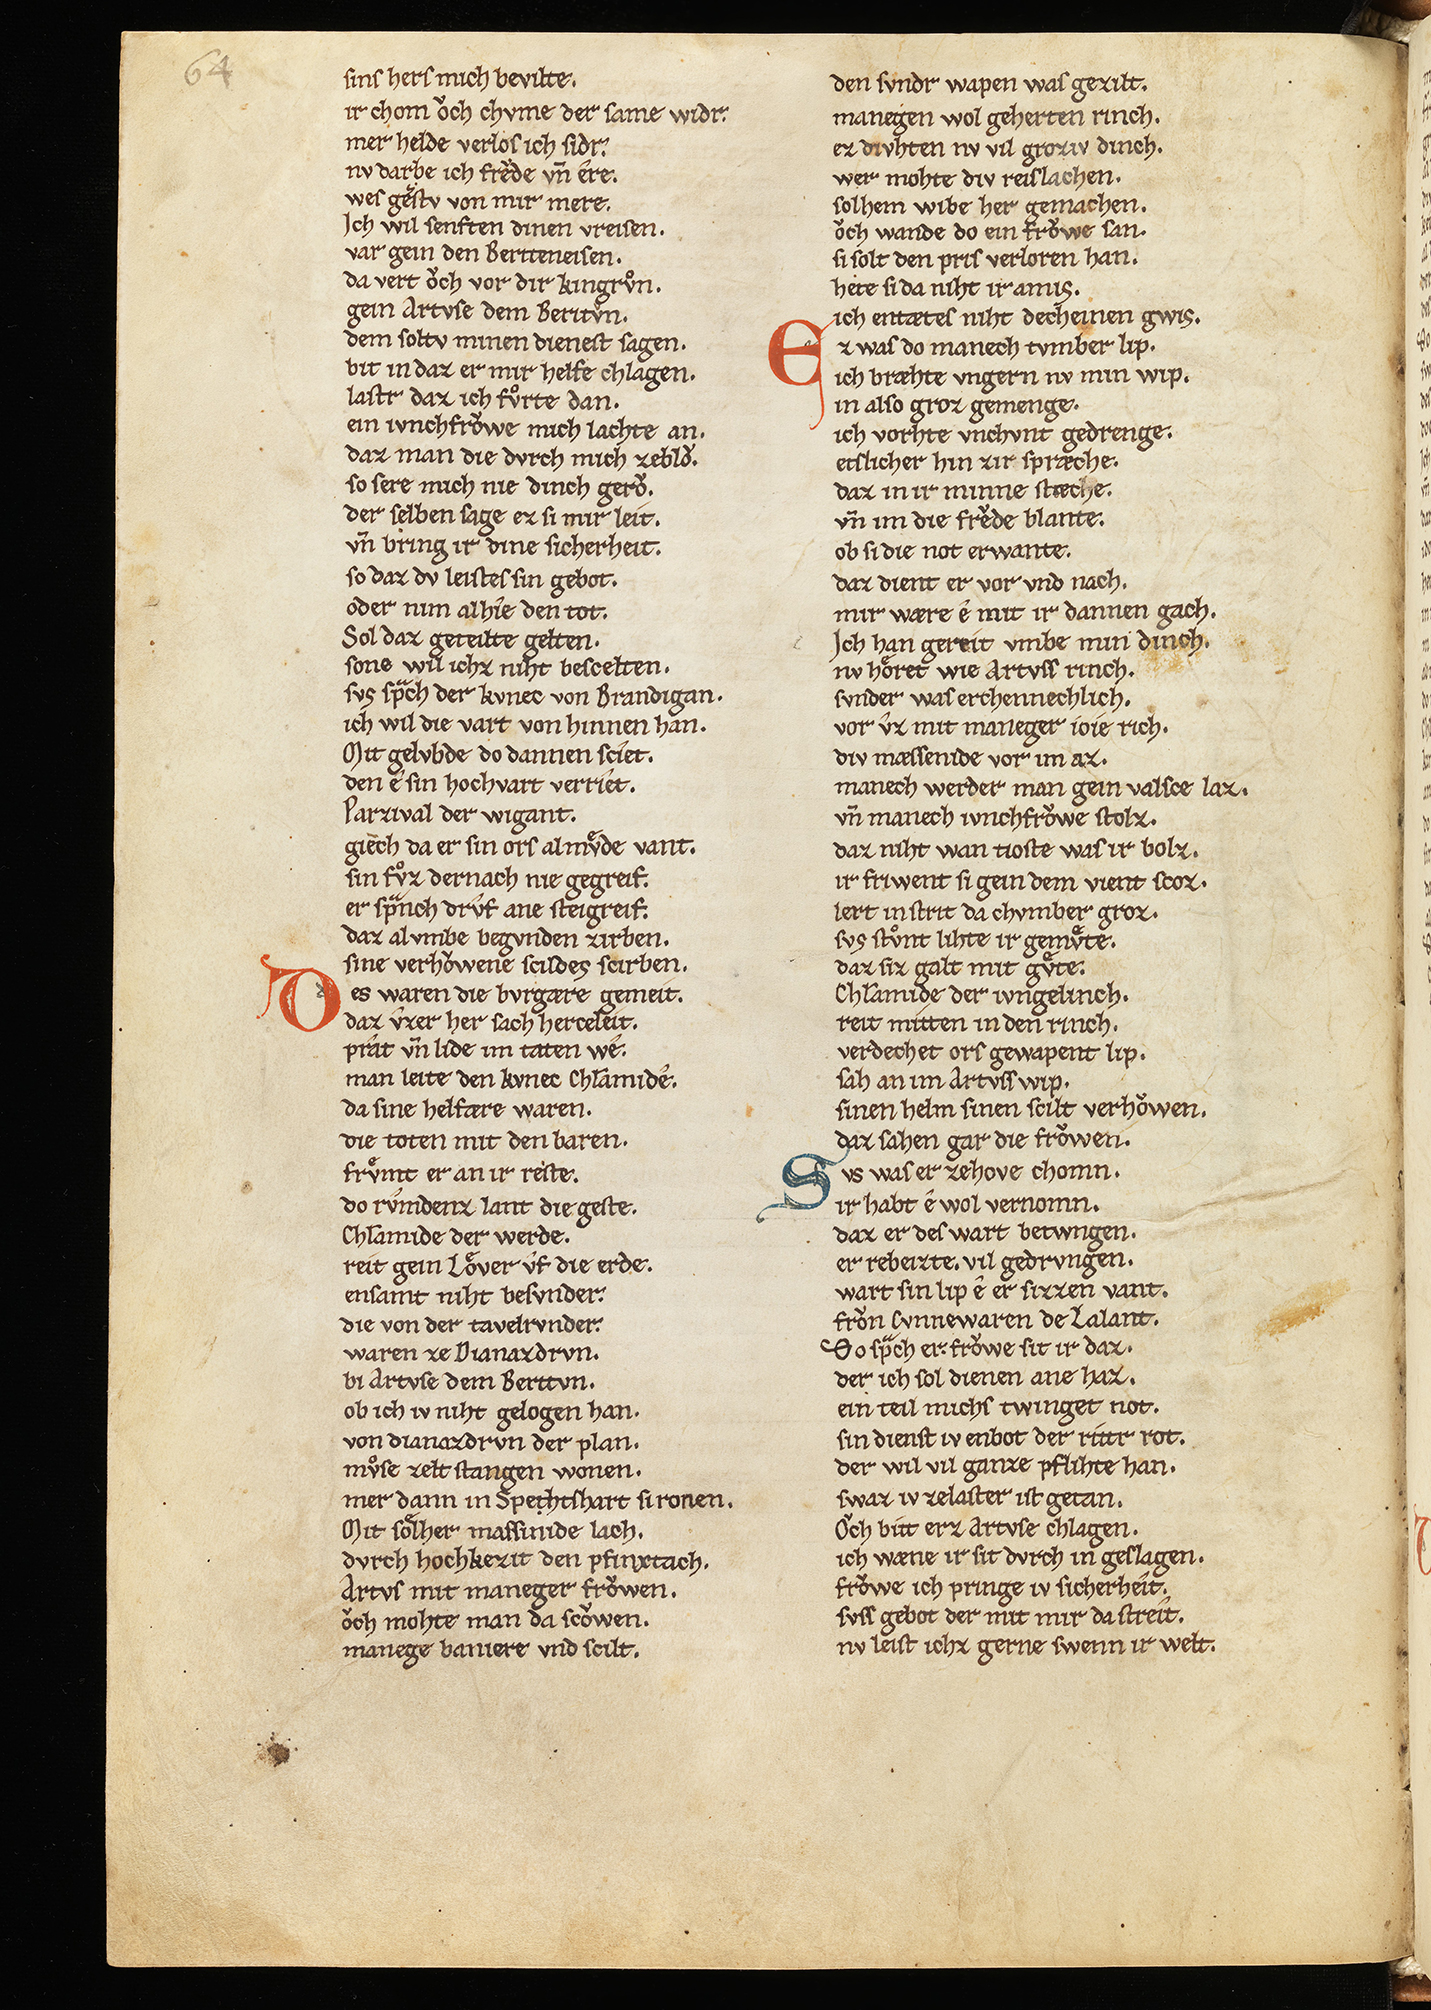 64
sins hers mich bevilte.
ir chom oͮch chvme der same widr.
mer helde verlos ich sidr.
nv darbe ich freͮde vn̄ ere.
wes gestv von mir mere.
Ich wil senften dinen vreisen.
var gein den Berteneisen.
da vert oͮch vor dir kingrvͦn.
gein Artvse dem Beritvͦn.
dem soltv minen dienest sagen.
bit in daz er mir helfe chlagen.
lastr daz ich fvͦrte dan.
ein ivnchfroͮwe mich lachte an.
daz man die dvrch mich zebloͮ.
so sere mich nie dinch geroͮ.
der selben sage ez si mir leit.
vn̄ bring ir dine sicherheit.
so daz dv leistes sin gebot.
oder nim alhie den tot.
Sol daz geteilte gelten.
sone wil ichz niht bescelten.
svs spͣch der kvnec von Brandigan.
ich wil die vart von hinnen han.
Mit gelvbde do dannen sciet.
den e sin hochvart verriet.
Parzival der wigant.
giech da er sin ors almvͤde vant.
sin fvͦz dernach nie gegreif.
er spͣnch drvf ane steigreif.
daz al vmbe begvnden zirben.
sine verhoͮwene scildes scirben.
Des waren die bvrgære gemeit.
daz vzer her sach herceleit.
prat vn̄ lide im taten we.
man leite den kvnec Chlamide.
da sine helfære waren.
die toten mit den baren.
frvͤmt er an ir reste.
do rvmdenz lant die geste.
Chlamide der werde.
reit gein Loͤver vf die erde.
ensamt niht besvnder.
die von der tavelrvnder.
waren ze Dianazdrvn.
bi Artvse dem Bertvn.
ob ich iv niht gelogen han.
von dianazdrvn der plan.
mvͦse zeltstangen wonen.
mer dann in Spehtshart si ronen.
Mit soͤlher massinide lach.
dvrch hochkezit den pfinxtach.
Artvs mit maneger froͮwen.
oͮch mohte man da scoͮwen.
manege baniere vnd scilt.
den svndr wapen was gezilt.
manegen wol geherten rinch.
ez divhten nv vil groziv dinch.
wer mohte div reislachen.
solhem wibe her gemachen.
oͮch wande do ein froͮwe san.
si solt den pris verloren han.
hete si da niht ir amis.
ich entætes niht decheinen gwis.
Ez was do manech tvmber lip.
ich bræhte vngern nv min wip.
in also groz gemenge.
ich vorhte vnchvnt gedrenge.
etslicher hin zir spræche.
daz in ir minne stæche.
vn̄ im die freͮde blante.
ob si die not erwante.
daz dient er vor vnd nach.
mir wære e mit ir dannen gach.
Ich han gereit vmbe min dinch.
nv hoͤret wie Artvss rinch.
svnder was erchennechlich.
vor vz mit maneger ioie rich.
div mæssenide vor im az.
manech werder man gein valsce laz.
vn̄ manech ivnchfroͮwe stolz.
daz niht wan tioste was ir bolz.
ir friwent si gein dem vient scoz.
lert in strit da chvmber groz.
svs stvͦnt lihte ir gemvͤte.
daz siz galt mit gvͤte.
Chlamide der ivngelinch.
reit mitten in den rinch.
verdechet ors gewapent lip.
sah an im Artvss wip.
sinen helm sinen scilt verhoͮwen.
daz sahen gar die froͮwen.
Svs was er zehove chomn.
ir habt e wol vernomn.
daz er des wart betwngen.
er rebeizte. vil gedrvngen.
wart sin lip e er sizzen vant.
froͮn Cvnnewaren de Lalant.
Do spͣch er. froͮwe sit ir daz.
der ich sol dienen ane haz.
ein teil michs twinget not.
sin dienst iv enbot der rittr rot.
der wil vil ganze pflihte han.
swaz iv zelaster ist getan.
Oͮch bitt erz Artvse chlagen.
ich wæne ir sit dvrch in geslagen.
froͮwe ich pringe iv sicherheit.
svss gebot der mit mir da streit.
nv leist ichz gerne swenn ir welt.